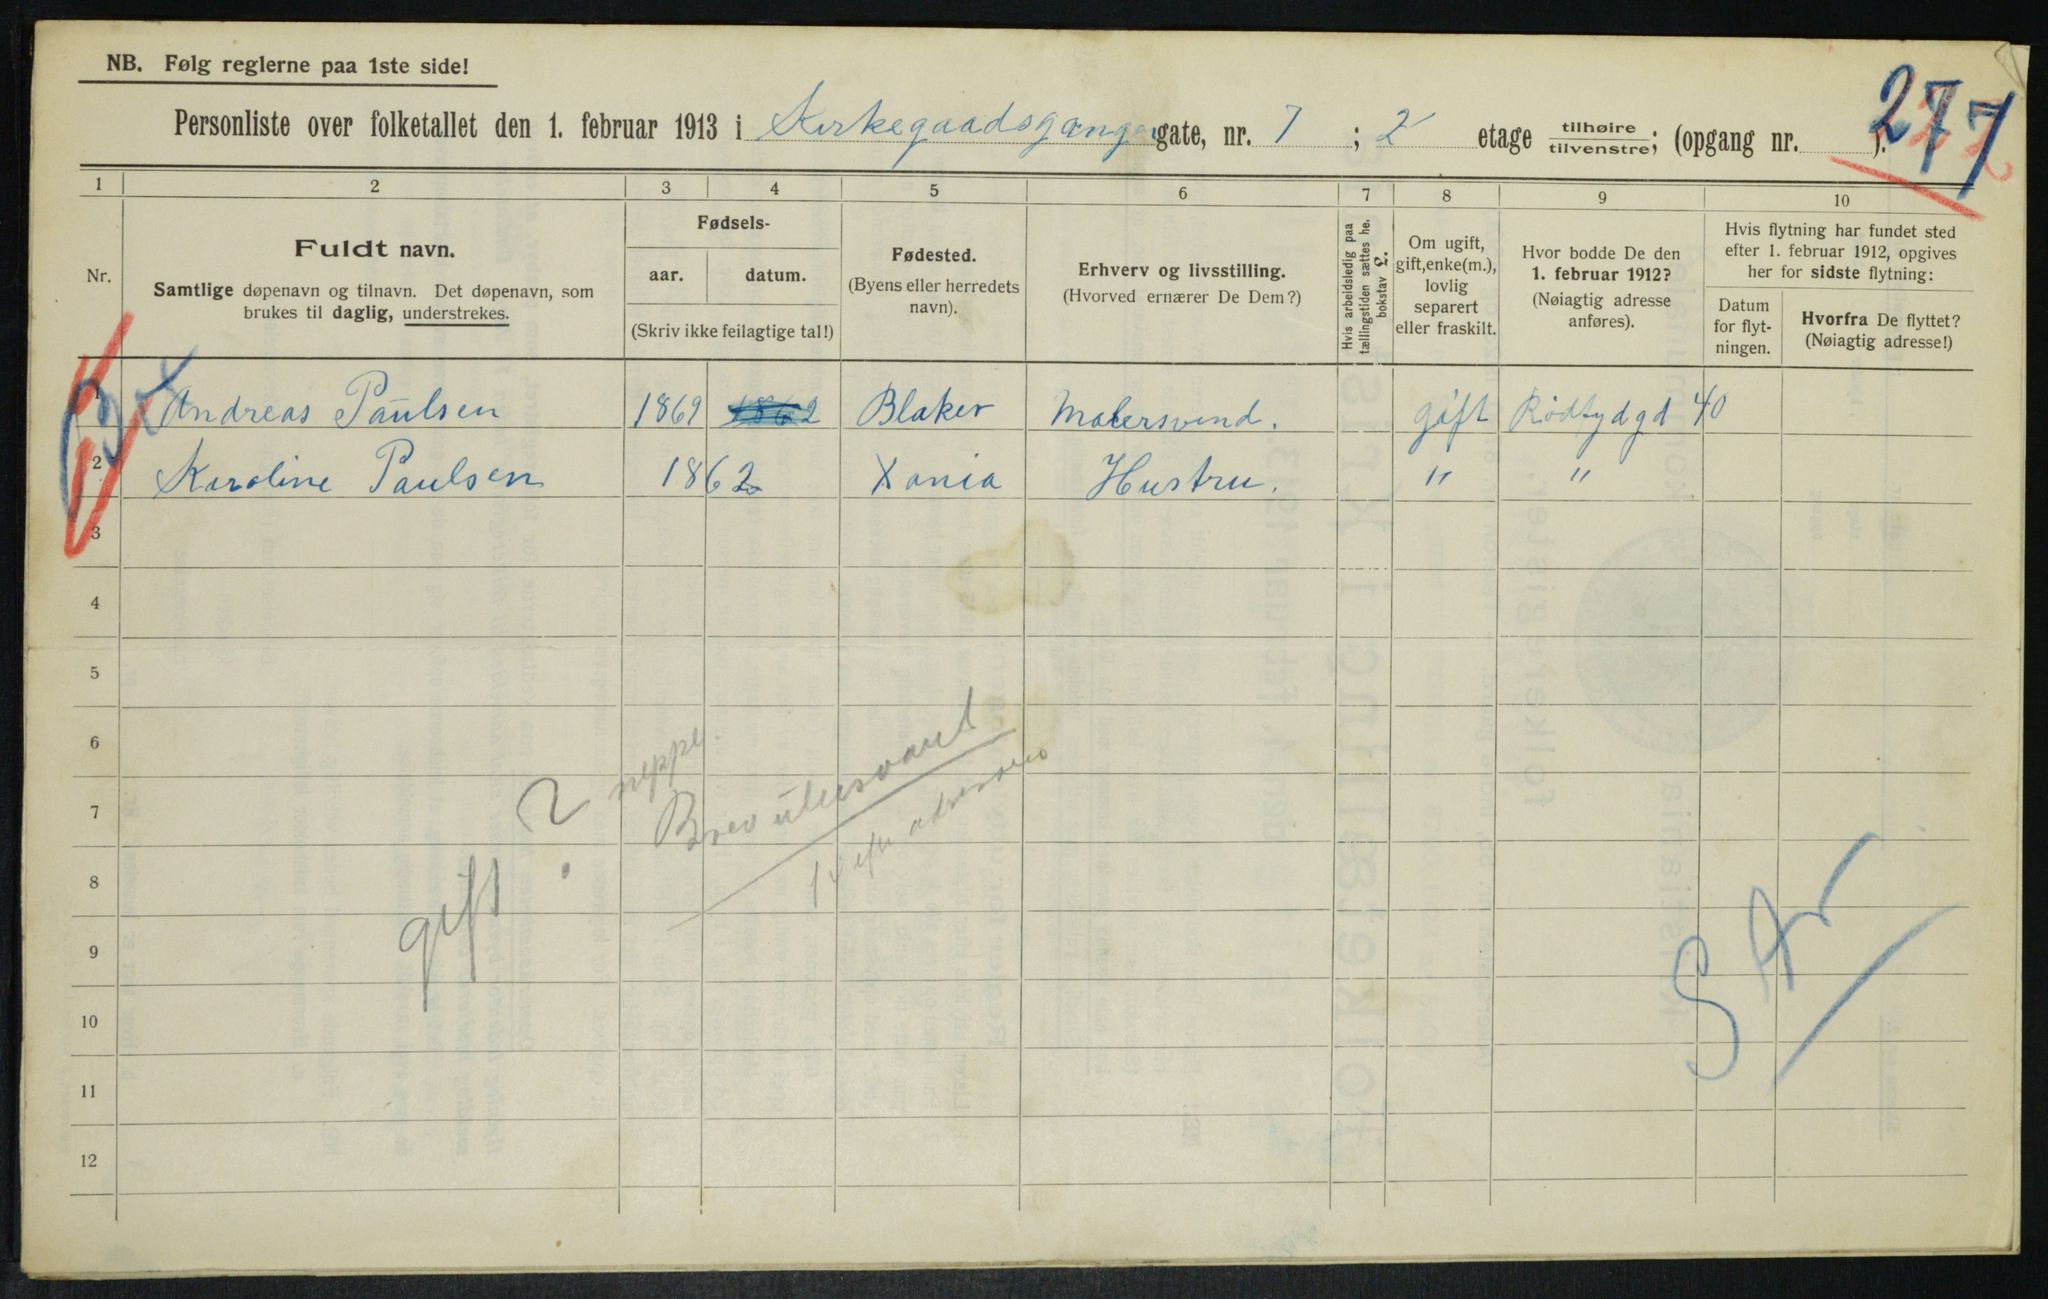 NB. Følg reglerne paa 1ste side!
277
Personliste over folketallet den 1. februar 1913 i Kirkegaadsgangen gate, nr. 7 ; 2 etage tilhøire tilvenstre; (opgang nr. ).
1 2 3 4 5 6 7 8 9 10
Nr.
Fuldt navn.
Samtlige døpenavn og tilnavn. Det døpenavn, som
brukes til daglig, understrekes.
Fødsels-
aar. datum.
(Skriv ikke feilagtige tal!)
Fødested.
(Byens eller herredets
navn).
Erhverv og livsstilling.
(Hvorved ernærer De Dem?)
Hvis arbeidsledig paa
tællingstiden sættes he.
bokstav L.
Om ugift,
gift, enke(m.),
lovlig
separert
eller fraskilt.
Hvor bodde De den
1. februar 1912?
(Nøiagtig adresse
anføres).
Hvis flytning har fundet sted
efter 1. februar 1912, opgives
her for sidste flytning:
Datum
for flyt-
ningen.
Hvorfra De flyttet?
(Nøiagtig adresse!)
1 Andreas Paulsen 1869 1862 Blaker Malersvend. gift Rødbydgd 40
2 Karoline Paulsen 1862 Xania Hustru. " "
3
4
5
6
7
8
9
10
11
12
? neppe.
Brev ubesvaret
gift